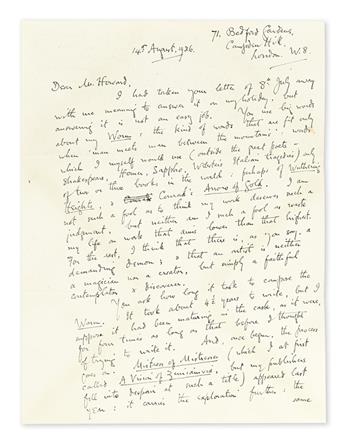 71, Bedford Gardens,
Campden Hill,
London. W.8.
14th August, 1936.
Dear Mr. Howard,
I had taken your letter of 8th July away
with me meaning to answer it on my holiday; but
answering it is not an easy job. You use big words
about my Worm: the kind of words that are fit only
'when man meets man between the mountains': words
which I myself would use (outside the great poets –
Shakespeare, Homer, Sappho, Webster's Italian tragedies) only
of two or three books in the world: perhaps of Wuthering
Heights, & Conrad's Arrow of Gold. I am
not such a fool as to think my work deserves such a
judgment; but neither am I such a fool as waste
my life on work that aims lower than that highest.
For the rest, I think that there is, as you say, a
demanding demon: & that an artist is neither
a magician nor a creator, but simply a faithful
contemplator & discoverer.
You ask how long it took to compose the
Worm. It took about 4½ years to write, but I
suppose it had been maturing in the cask, as it were,
for four times as long as that before I thought
of trying to write it. And, once begun, the process
goes on. Mistress of Mistresses (which I at first
called A Vision of Zimiamvia, but my publishers
fell into despair at such a title) appeared last
year: it carries the exploration further, the same